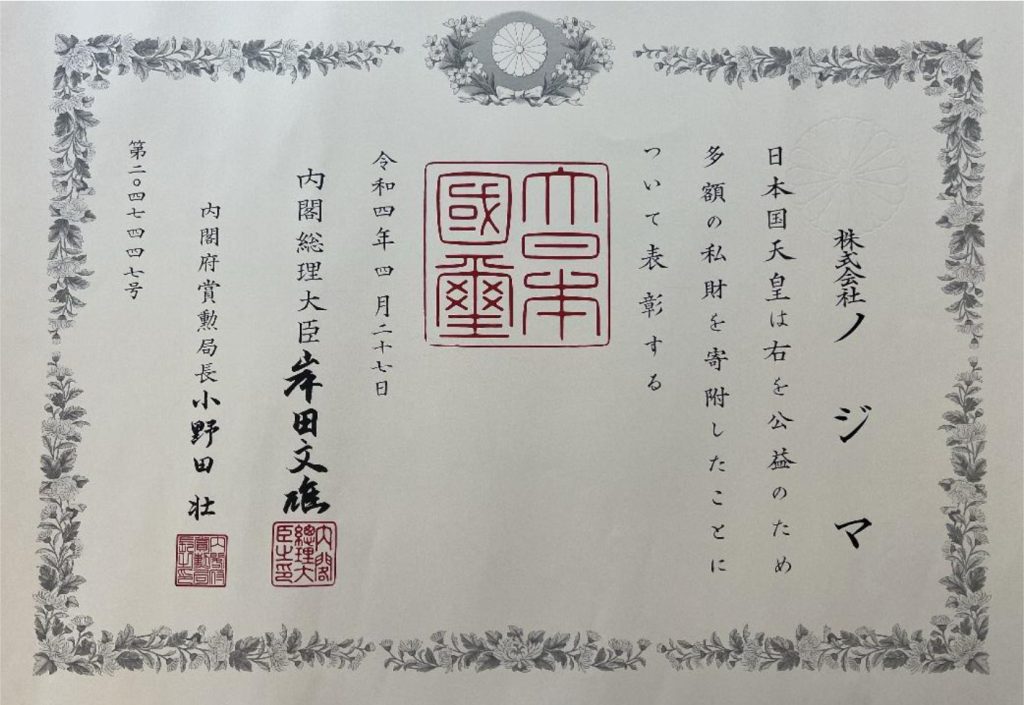 株式会社ノジマ
日本国天皇は右を公益のため
多額の私財を寄附したことに
ついて表彰する
大日本國璽
令和四年四月二十七日
内閣総理大臣岸田文雄
内閣総理大臣之印
内閣府賞勲局長小野田壮
内閣府賞勲局長之印
第二〇四七四四七号